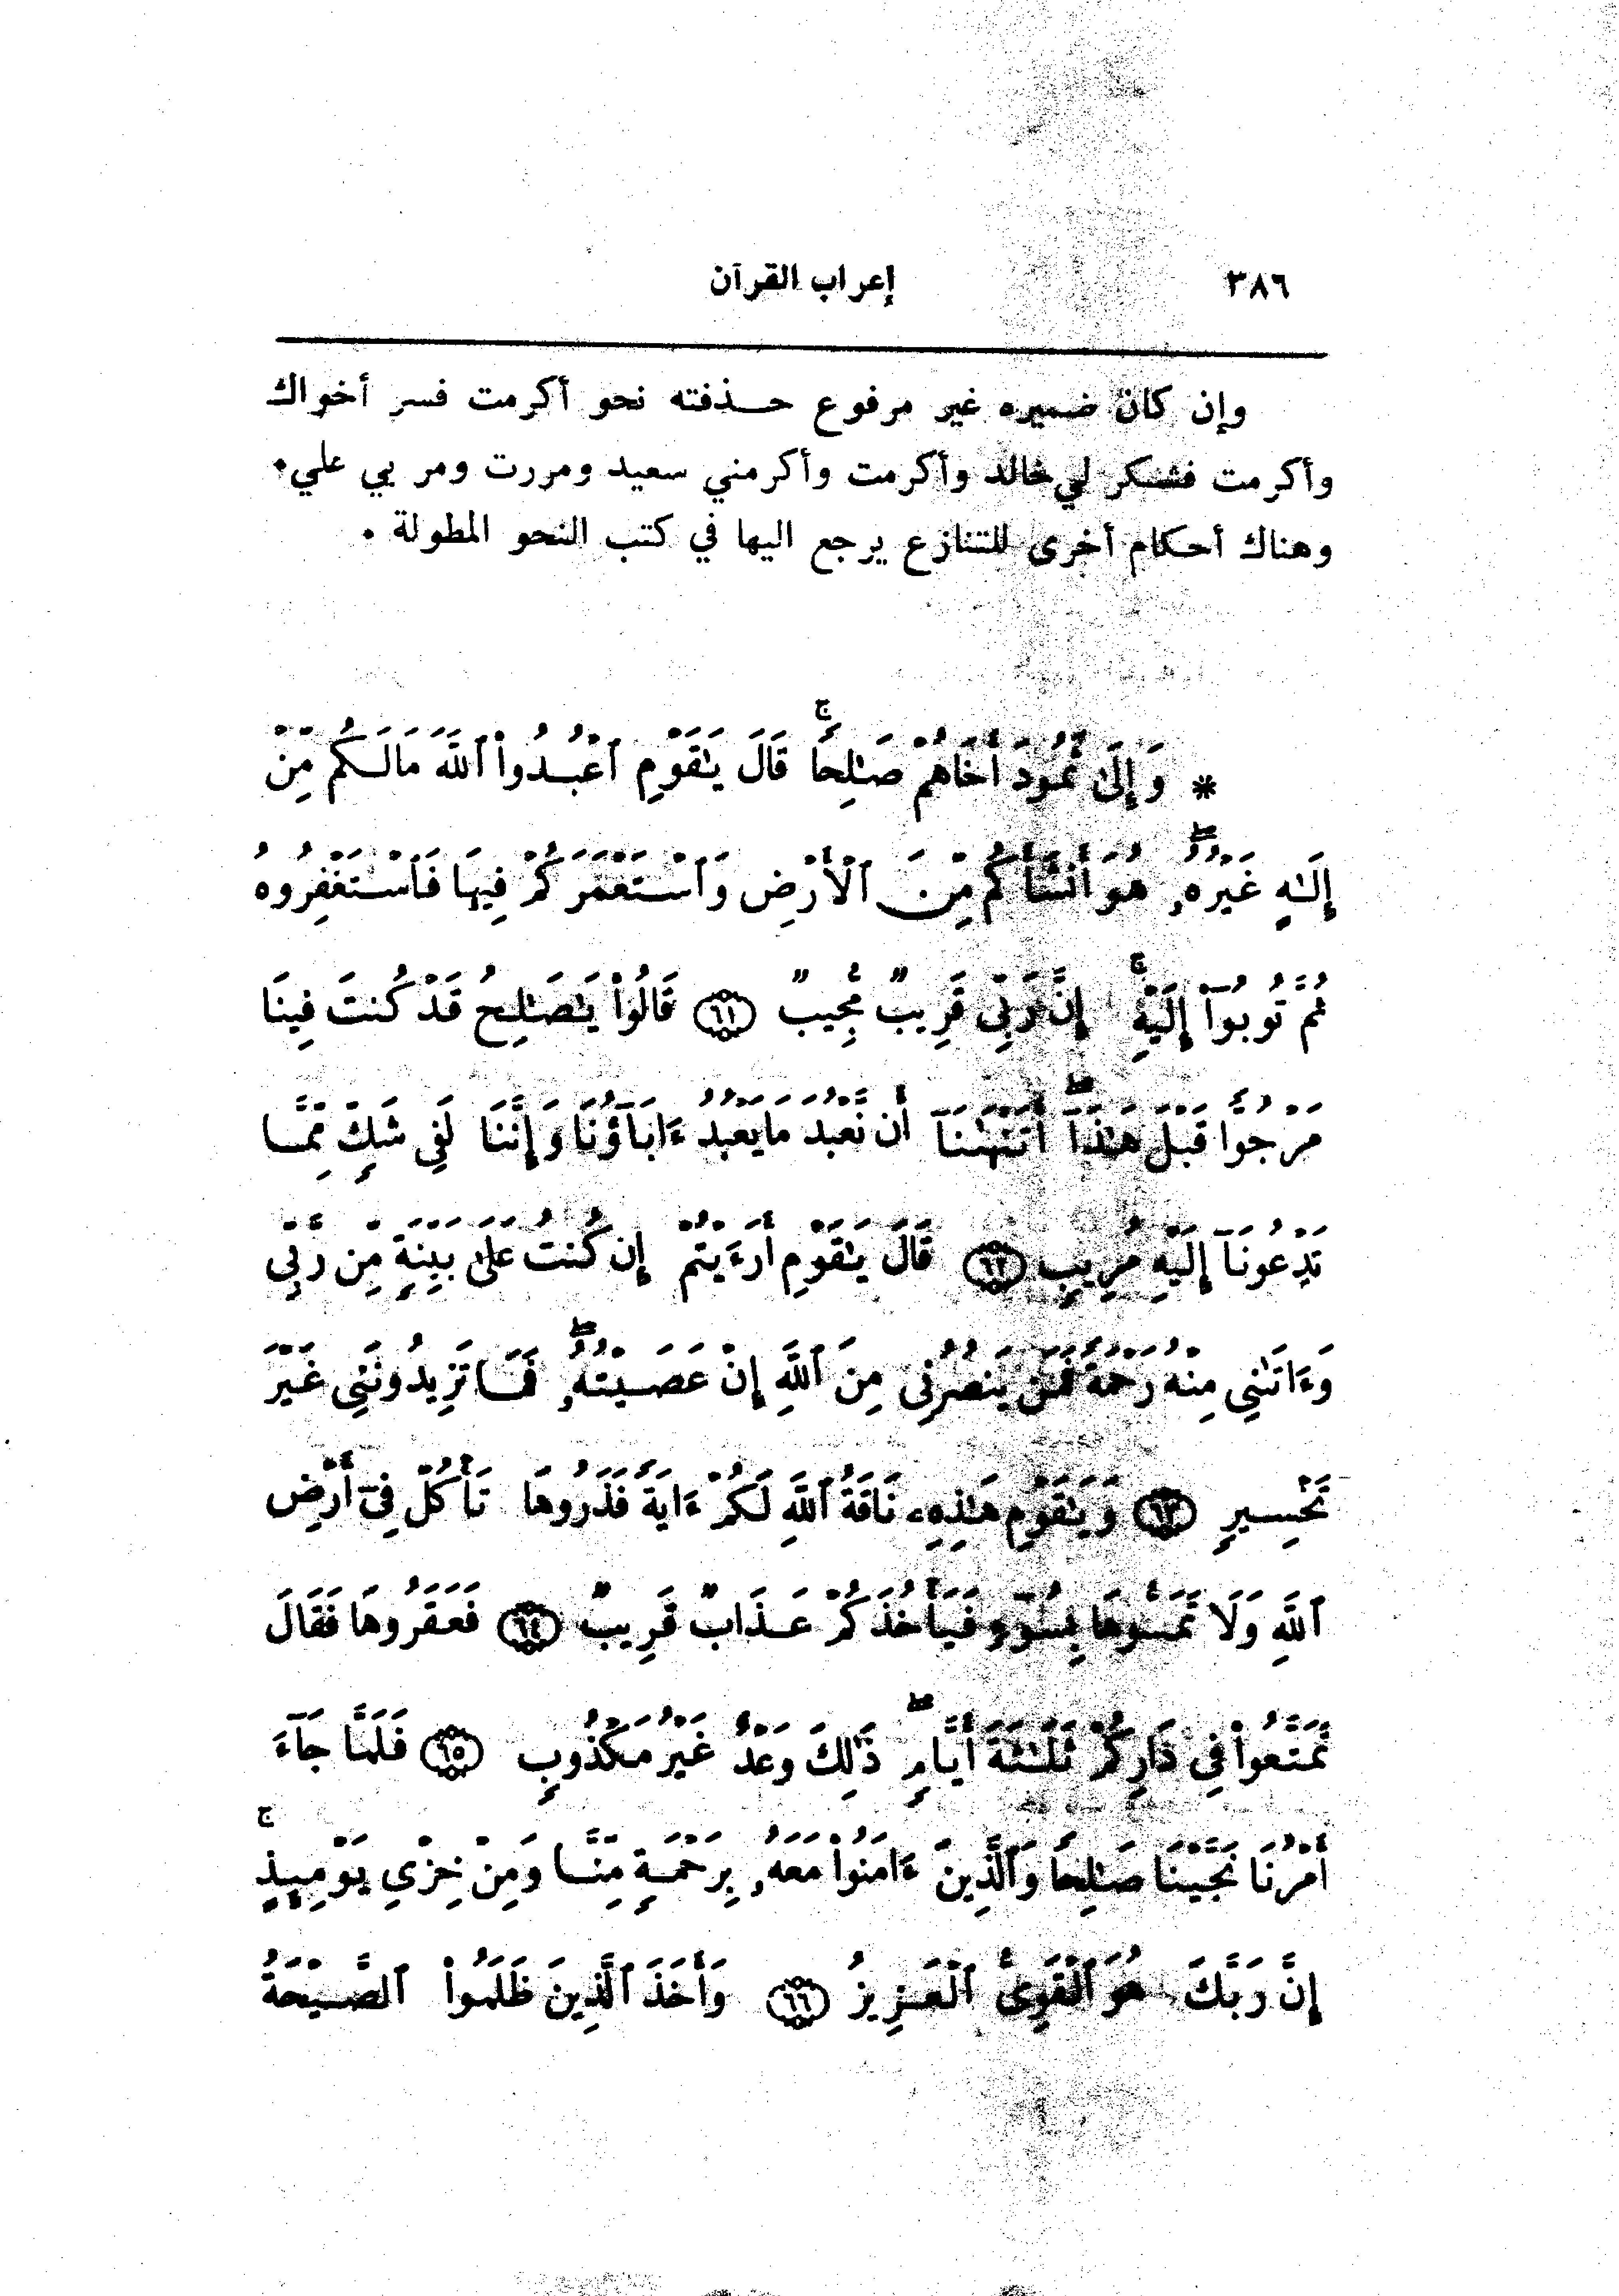 ٣٨٦ إعراب القرآن
وإن كان ضميره غير مرفوع حذفته نحو أكرمت فسر أخواك
وأكرمت فشكر لي خالد وأكرمت وأكرمني سعيد ومررت ومر بي علي.
وهناك أحكام أخرى للتنازع يرجع اليها في كتب النحو المطولة .
* وَإِلَىٰ ثَمُودَ أَخَاهُمْ صَـٰلِحًا ۚ قَالَ يَـٰقَوْمِ ٱعْبُدُوا۟ ٱللَّهَ مَالَكُم مِّنْ
إِلَـٰهٍ غَيْرُهُۥ ۖ هُوَ أَنشَأَكُم مِّنَ ٱلْأَرْضِ وَٱسْتَعْمَرَكُمْ فِيهَا فَٱسْتَغْفِرُوهُ
ثُمَّ تُوبُوٓا۟ إِلَيْهِ ۚ إِنَّ رَبِّى قَرِيبٌ مُّجِيبٌ ٦١ قَالُوا۟ يَـٰصَـٰلِحُ قَدْ كُنتَ فِينَا
مَرْجُوًّا قَبْلَ هَـٰذَآ ۖ أَتَنْهَىٰنَآ أَن نَّعْبُدَ مَا يَعْبُدُ ءَابَآؤُنَا وَإِنَّنَا لَفِى شَكٍّ مِّمَّا
تَدْعُونَآ إِلَيْهِ مُرِيبٍ ٦٢ قَالَ يَـٰقَوْمِ أَرَءَيْتُمْ إِن كُنتُ عَلَىٰ بَيِّنَةٍ مِّن رَّبِّى
وَءَاتَىٰنِى مِنْهُ رَحْمَةً فَمَن يَنصُرُنِى مِنَ ٱللَّهِ إِنْ عَصَيْتُهُۥ ۖ فَمَا تَزِيدُونَنِى غَيْرَ
تَخْسِيرٍ ٦٣ وَيَـٰقَوْمِ هَـٰذِهِۦ نَاقَةُ ٱللَّهِ لَكُمْ ءَايَةً فَذَرُوهَا تَأْكُلْ فِىٓ أَرْضِ
ٱللَّهِ وَلَا تَمَسُّوهَا بِسُوٓءٍ فَيَأْخُذَكُمْ عَذَابٌ قَرِيبٌ ٦٤ فَعَقَرُوهَا فَقَالَ
تَمَتَّعُوا۟ فِى دَارِكُمْ ثَلَـٰثَةَ أَيَّامٍ ۖ ذَٰلِكَ وَعْدٌ غَيْرُ مَكْذُوبٍ ٦٥ فَلَمَّا جَآءَ
أَمْرُنَا نَجَّيْنَا صَـٰلِحًا وَٱلَّذِينَ ءَامَنُوا۟ مَعَهُۥ بِرَحْمَةٍ مِّنَّا وَمِنْ خِزْىِ يَوْمِئِذٍ ۚ
إِنَّ رَبَّكَ هُوَ ٱلْقَوِىُّ ٱلْعَزِيزُ ٦٦ وَأَخَذَ ٱلَّذِينَ ظَلَمُوا۟ ٱلصَّيْحَةُ